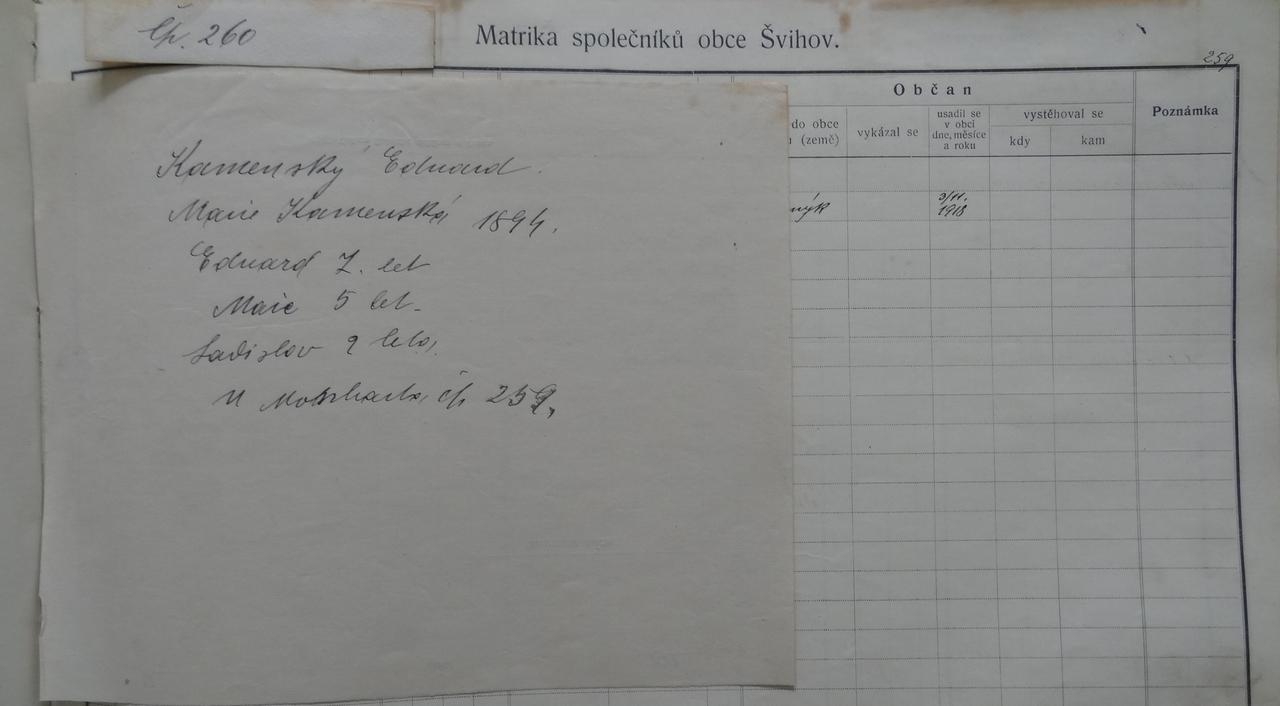 Čp. 260
Matrika společníků obce Švihov.
259
Občan
do obce
(země)
vykázal se
usadil se
v obci
dne, měsíce
a roku
vystěhoval se
kdy
kam
Poznámka
3/11.
1918
Kamenský Eduard.
Marie Kamenská 1894.
Eduard 7. let
Marie 5 let.
Ladislav 2 leta,
U čp 259.